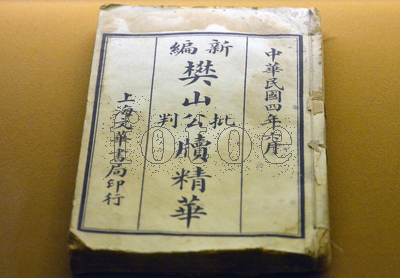 中華民國四年七月
新編
樊山
批公判
牘精華
上海文華書局印行
fotoe